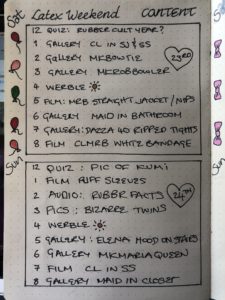 Sat Latex Weekend CONTENT
12 QUIZ: RUBBER CULT YEAR?
1 GALLERY CL IN SJ & SS
2 GALLERY MCBOWTIE
3 GALLERY MCROBBOWLER
4 WERBLE
5 FILM: MRB STRAIGHT JACKET/NIPS
6 GALLERY MAID IN BATHROOM
7 GALLERY: DAZZA 40 RIPPED TIGHTS
8 FILM CLMRB WHITE BANDAGE
23RD
Sun
12 QUIZ: PIC OF KUMI
1 FILM PUFF SLEEVES
2 AUDIO: RUBBR FACTS
3 PICS: BIZARRE TWINS
4 WERBLE
5 GALLERY: ELENA HOOD ON STAIRS
6 GALLERY MKMARIAQUEEN
7 FILM CL IN SS
8 GALLERY MAID IN CLOSET
24TH
Sun